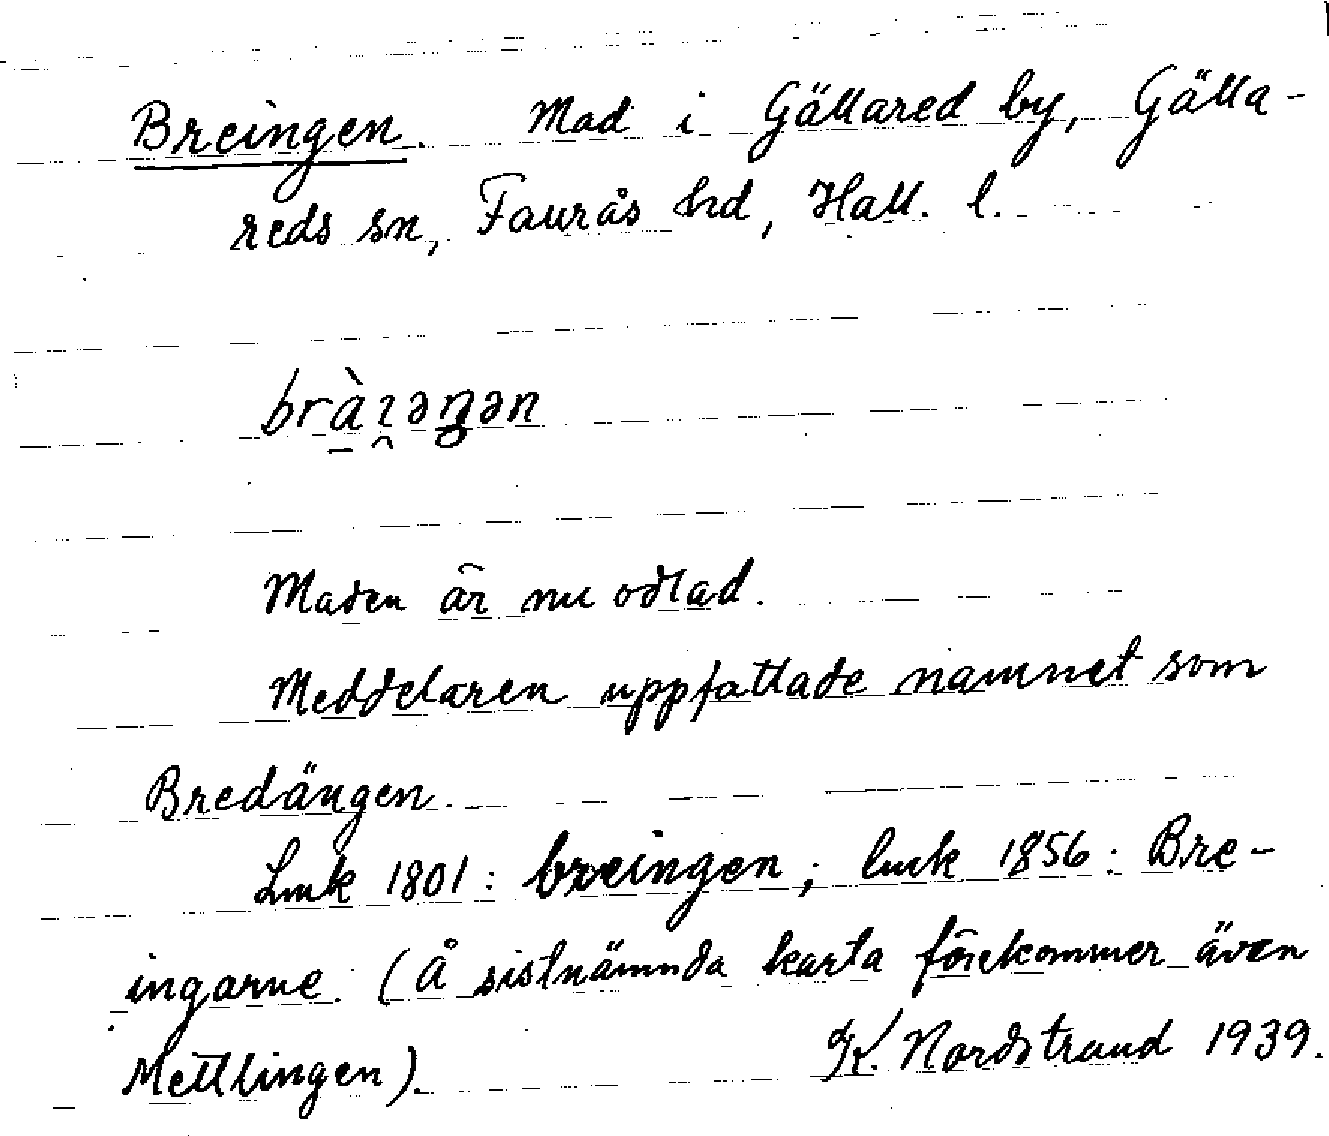 Breingen. Mad i Gällared by, Gälla-
reds sn, Faurås hd, Hall. l.
bràɪ̯əŋən
Maden är nu odlad.
Meddelaren uppfattade namnet som
Bredängen.
Lmk 1801: breingen; lmk 1856: Bre-
ingarne. (Å sistnämnda karta förekommer även
Mettlingen). K. Nordstrand 1939.